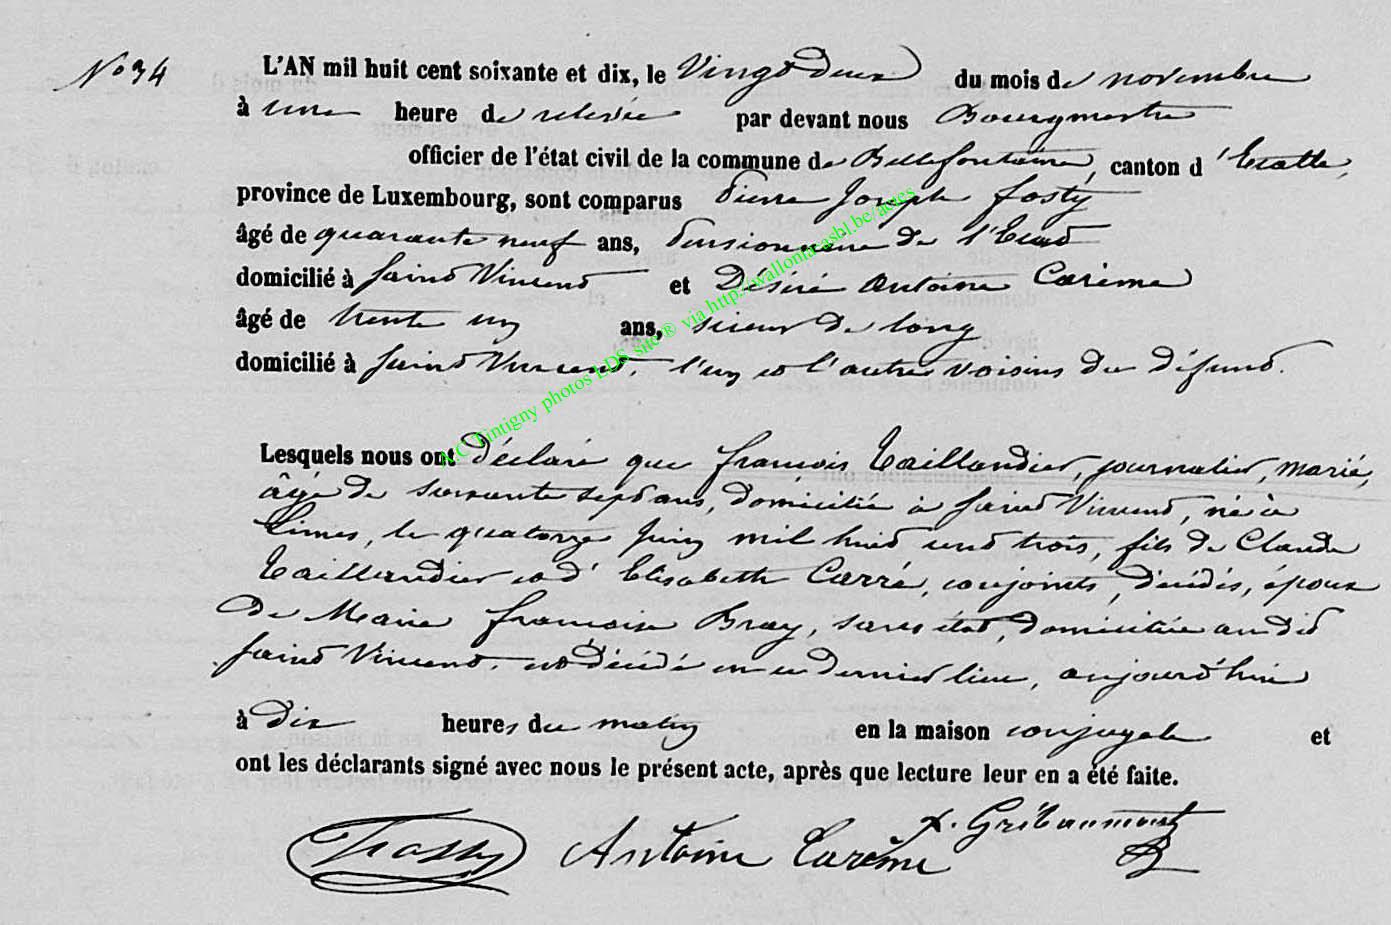 No 34
L'AN mil huit cent soixante et dix, le Vingt deux du mois de novembre
à une heure de relevée par devant nous Bourgmestre
officier de l'état civil de la commune de Bellefontaine, canton d'Etalle,
province de Luxembourg, sont comparus Pierre Joseph Fosty
âgé de quarante neuf ans, Pensionné de l'Etat
domicilié à Saint Vincent et Désiré Antoine Carême
âgé de trente un ans, scieur de long
domicilié à Saint Vincent, l'un et l'autre voisins du défunt.
A.C Tintigny photos LDS site® via http://wallonia.asbl.be/actes
Lesquels nous ont déclaré que François Taillandier, journalier, marié,
âgé de soixante sept ans, domicilié à Saint Vincent, né à
Limes, le quatorze Juin mil huit cent trois, fils de Claude
Taillandier et d'Elisabeth Carré, conjoints, décédés, époux
de Marie Françoise Bray, sans état, domiciliée au dit
Saint Vincent, est décédé en ce dernier lieu, aujourd'hui
à dix heures du matin en la maison conjugale et
ont les déclarants signé avec nous le présent acte, après que lecture leur en a été faite.
Antoine Carême